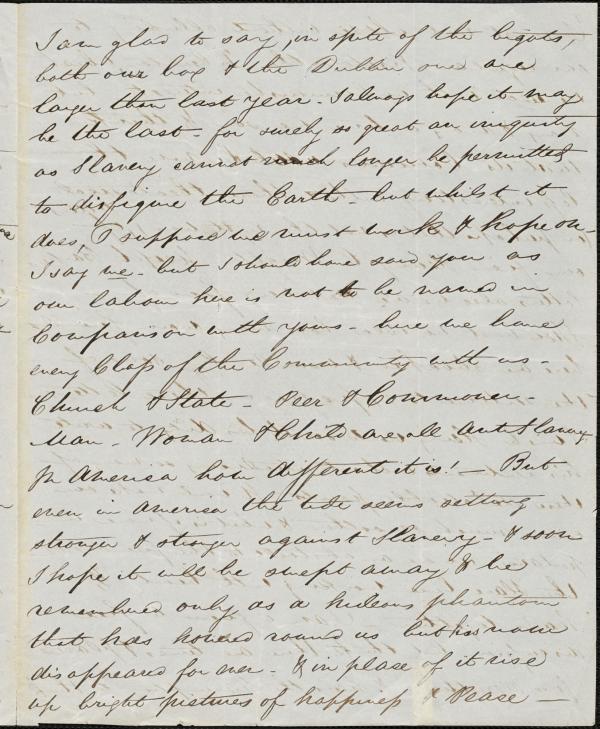 I am glad to say, in spite of the bigots,
both our box & the Dublin one are
larger than last year - I always hope it may
be the last - for surely so great an iniquity
as Slavery cannot much longer be permitted
to disfigure the Earth - but whilst it
does, I suppose we must work & hope on -
I say we - but I should have said you as
our labour here is not to be named in
Comparison with yours - here we have
every Class of the Community with us -
Church & State - Peer & Commoner -
Man - Woman & Child are all anti Slavery
In America how different it is! - But
even in America the tide seems setting
stronger & stronger against Slavery - & soon
I hope it will be swept away & be
remembered only as a hideous phantom
that has hovered round us but is now
disappeared for ever - & in place of it rise
up bright pictures of happiness & Peace -